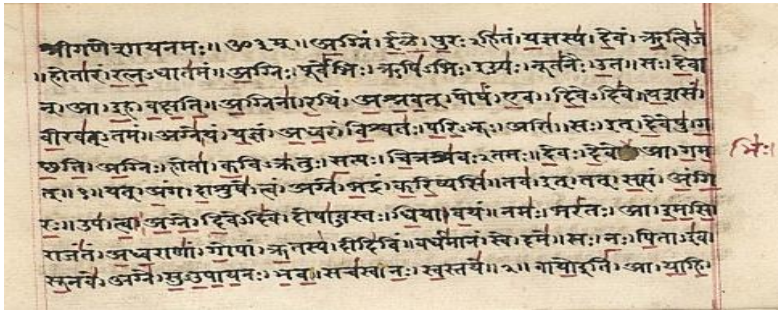 श्रीगणेशायनमः॥ॐ३म्॥अग्निं।ईळे।पुरःऽहितं।यज्ञस्य।देवं।ऋत्विजं
॥होतारं।रत्नऽधातमं॥अग्निः।पूर्वेभिः।ऋषिऽभिः।ईड्यः।नूतनैः।उत॥सः।देवा
न्।आ।इह।वक्षति॥अग्निना।रयिं।अश्नवत्।पोषं।एव।दिवेऽदिवे॥यशसं
वीरवत्ऽतमं॥अग्नेयं।यज्ञं।अध्वरं।विश्वतः।परिऽभूः।असि॥सः।इत्।देवेषु।ग
च्छति।अग्निः।होता।कविऽक्रतुः।सत्यः।चित्रश्रवःऽतमः॥देवः।देवे आ।गम
भिः।
त्॥१॥यत्।अंग।दाशुषे।त्वं।अग्ने।भद्रं।करिष्यसि॥तव।इत्।तत्।सत्यं।अंगि
रः॥उप।त्वा।अग्ने।दिवेऽदिवे।दोषाऽवस्तः।धिया।वयं॥नमः।भरंतः।आ।इमसि
राजंतं।अध्वराणां।गोपां।ऋतस्य।दीदिविं॥वर्धमानं।स्वे।दमे॥सः।नः।पिताऽइव
सूनवे।अग्ने।सुऽउपायनः।भव॥सचस्व।नः।स्वस्तये॥२॥वायोइति।आ।याहि।